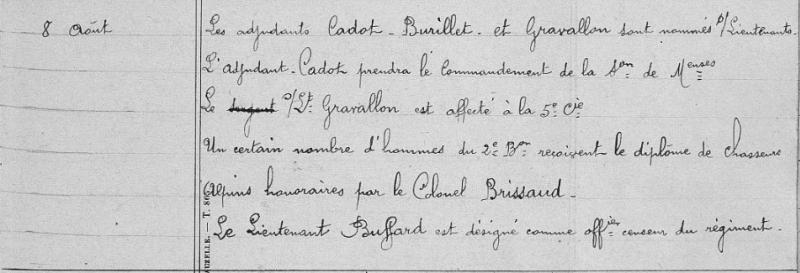 8 Août
Les adjudants Cadot - Burillet - et Gravallon sont nommés s/Lieutenants.
L'adjudant - Cadot prendra le Commandement de la Son de Meuses
Le sergent s/Lt Gravallon est affecté à la 5e Cie
Un certain nombre d'hommes du 2e Bon reçoivent le diplôme de chasseurs
Alpins honoraires par le Colonel Brissaud -
Le Lieutenant Buffard est désigné comme officier censeur du régiment.
OUZELLE. — T. 86